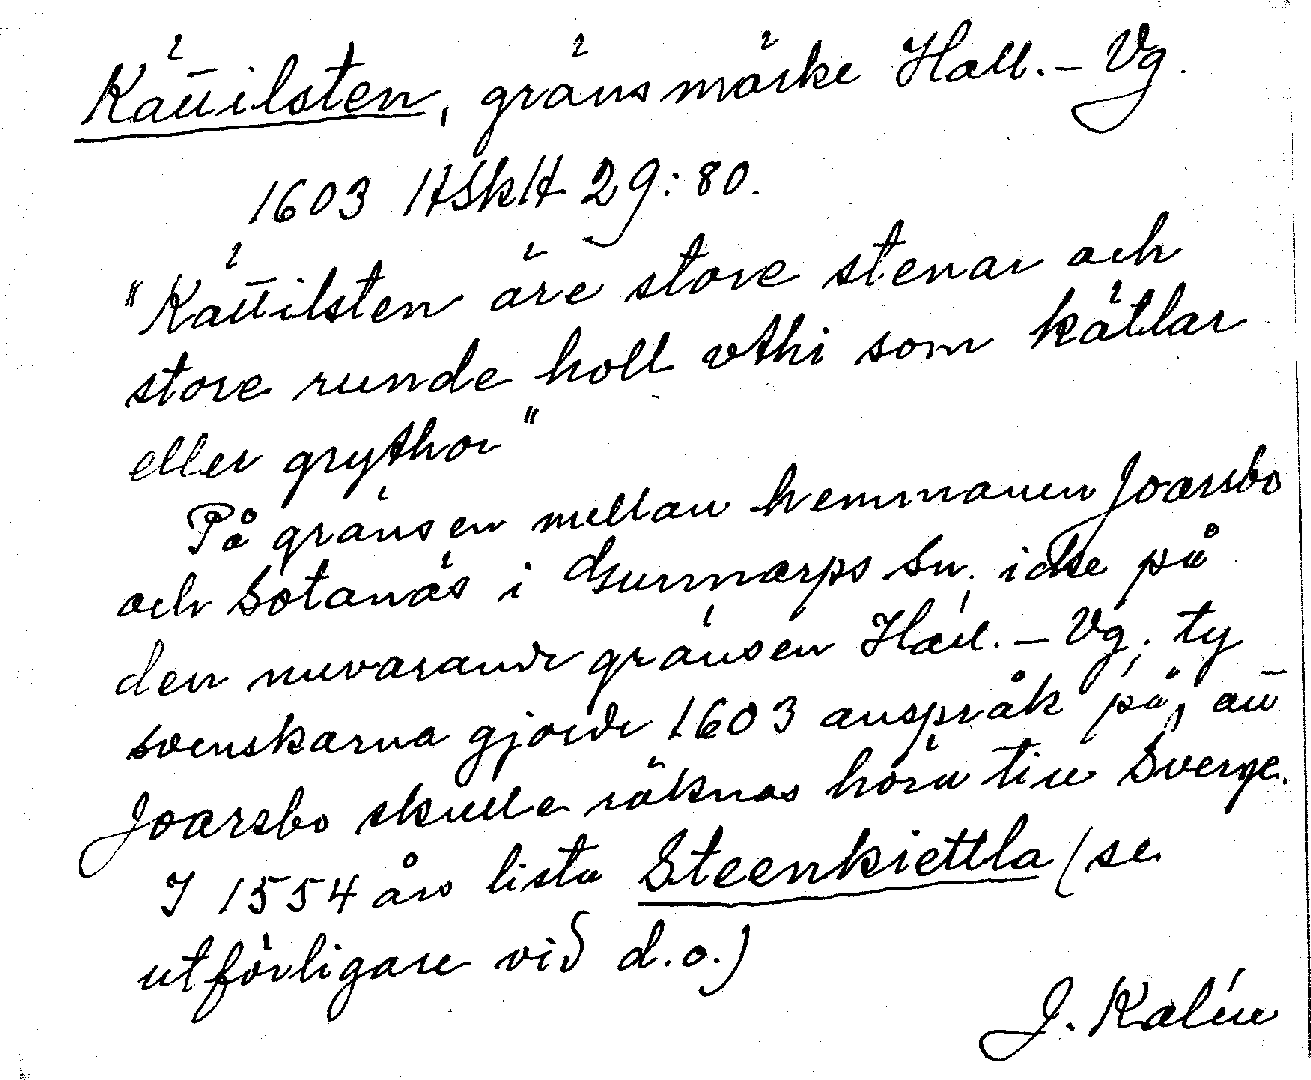 Kättilsten, gränsmärke Hall. – Vg.
1603 HSkH 29:80.
"Kättilsten äre store stenar och
store runde holl vthi som kätlar
eller grythor"
På gränsen mellan hemmanen Joarsbo
och Sotanäs i Gunnarps sn. icke på
den nuvarande gränsen Hall. – Vg, ty
svenskarna gjorde 1603 anspråk på, att
Joarsbo skulle räknas höra till Sverge.
I 1554 års lista Steenkiettla (se
utförligare vid d.o.)
J. Kalén